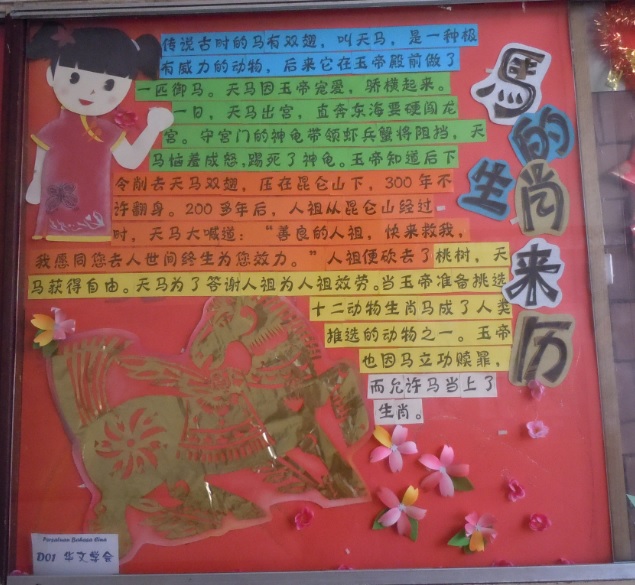 馬的生肖来历
传说古时的马有双翅，叫天马，是一种极
有威力的动物，后来它在玉帝殿前做了
一匹御马。天马因玉帝宠爱，骄横起来。
一日，天马出宫，直奔东海要硬闯龙
宫。守宫门的神龟带领虾兵蟹将阻挡，天
马恼羞成怒，踢死了神龟。玉帝知道后下
令削去天马双翅，压在昆仑山下，300年不
许翻身。200多年后，人祖从昆仑山经过
时，天马大喊道：“善良的人祖，快来救我，
我愿同您去人世间终生为您效力。”人祖便砍去了桃树，天
马获得自由。天马为了答谢人祖为人祖效劳。当玉帝准备挑选
十二动物生肖马成了人类
推选的动物之一。玉帝
也因马立功赎罪，
而允许马当上了
生肖。
Persatuan Bahasa Cina
D01 华文学会